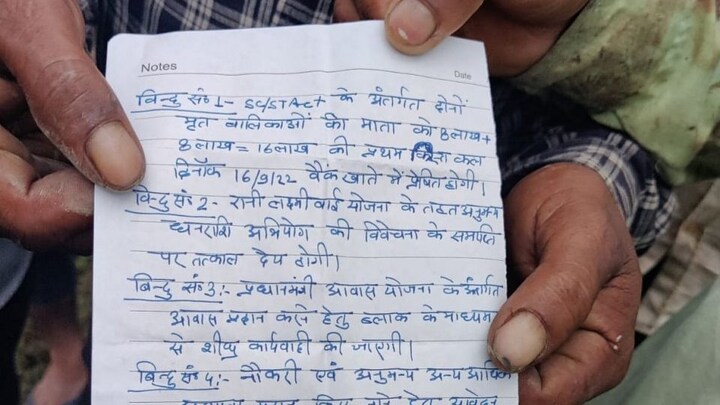 Notes
Date
बिन्दु सं० 1- SC/ST Act के अंतर्गत दोनों
मृत बालिकाओं की माता को 8 लाख +
8 लाख = 16 लाख की प्रथम किस्त कल
दिनाँक 16/9/22 बैंक खाते में प्रेषित होगी।
बिन्दु सं० 2- रानी लक्ष्मी बाई योजना के तहत अनुमन्य
धनराशि अभियोग की विवेचना के समाप्ति
पर तत्काल देय होगी।
बिन्दु सं० 3:- प्रधानमंत्री आवास योजना के अंतर्गत
आवास प्रदान करने हेतु ब्लाक के माध्यम
से शीघ्र कार्यवाही की जाएगी।
बिन्दु सं० 4:- नौकरी एवं अनुमन्य अन्य आर्थिक